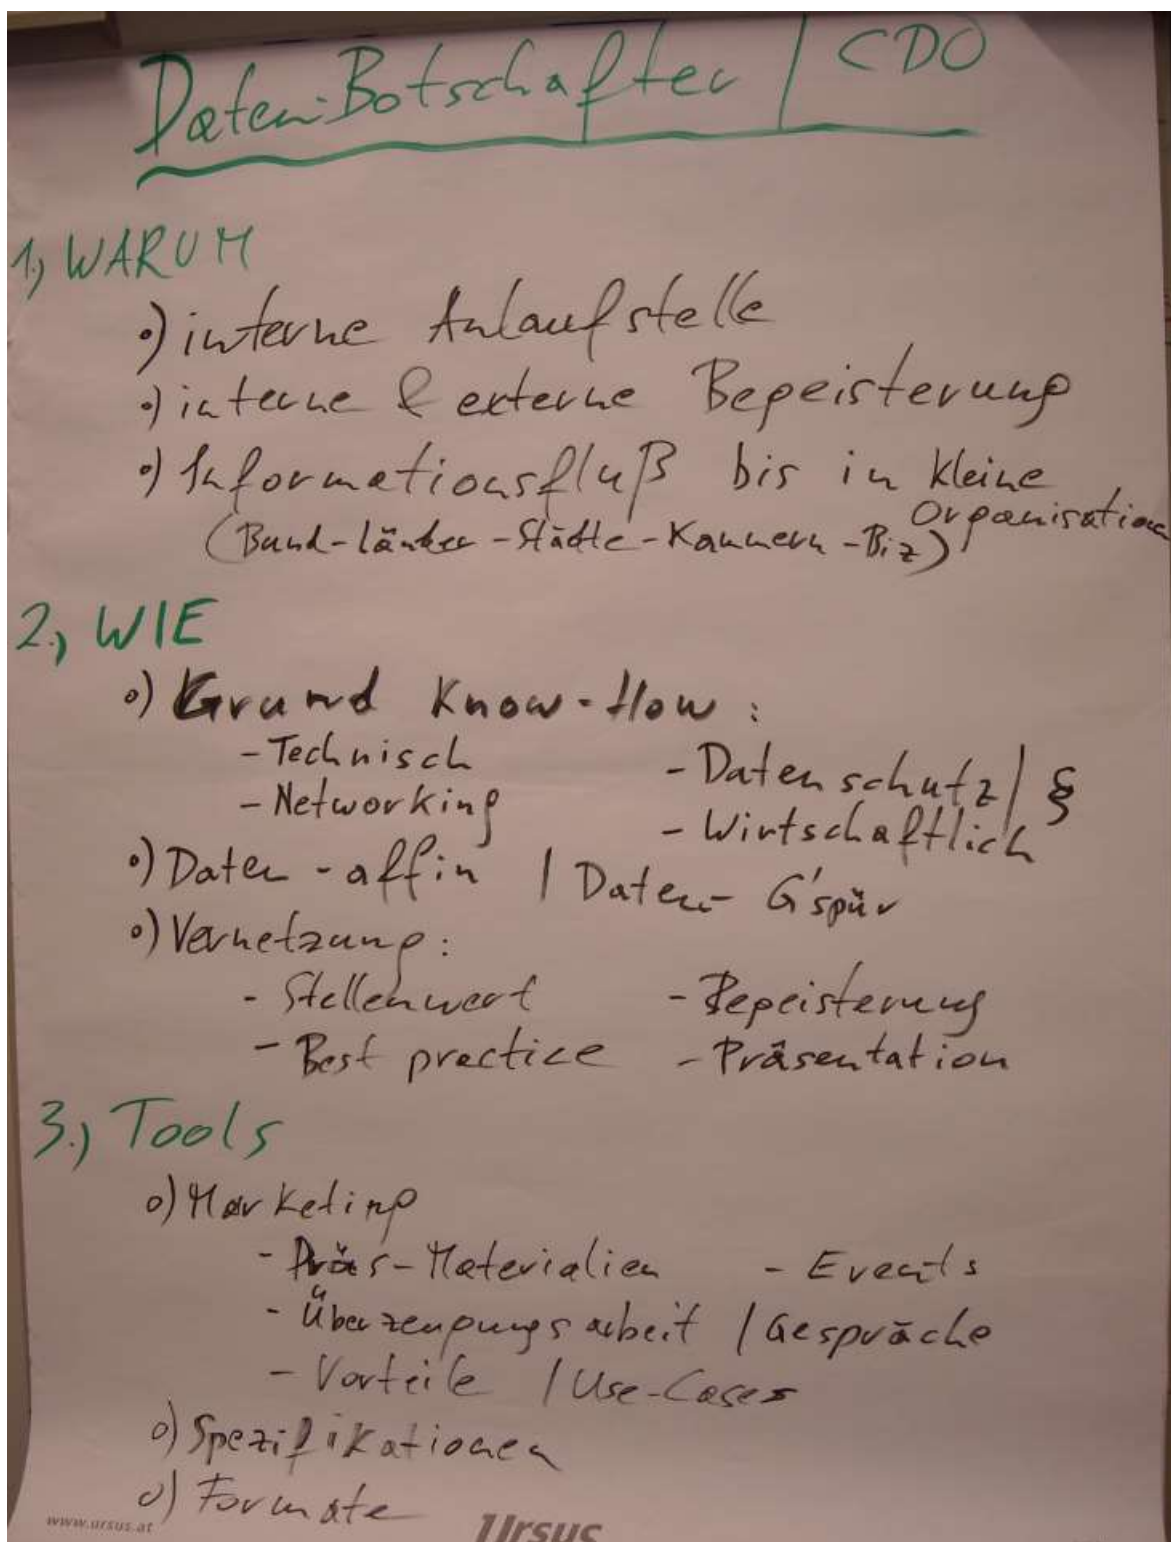 Daten-Botschafter / CDO
1.) WARUM
o) interne Anlaufstelle
o) interne & externe Begeisterung
o) Informationsfluß bis in kleine
Organisationen
(Bund-Länder-Städte-Kammern-Biz)
2.) WIE
o) Grund Know-How:
- Technisch - Datenschutz / §
- Networking - Wirtschaftlich
o) Daten-affin / Daten-G'spür
o) Vernetzung:
- Stellenwert - Begeisterung
- Best practice - Präsentation
3.) Tools
o) Marketing
- Präs-Materialien - Events
- Überzeugungsarbeit / Gespräche
- Vorteile / Use-Cases
o) Spezifikationen
o) Formate
www.ursus.at Ursus